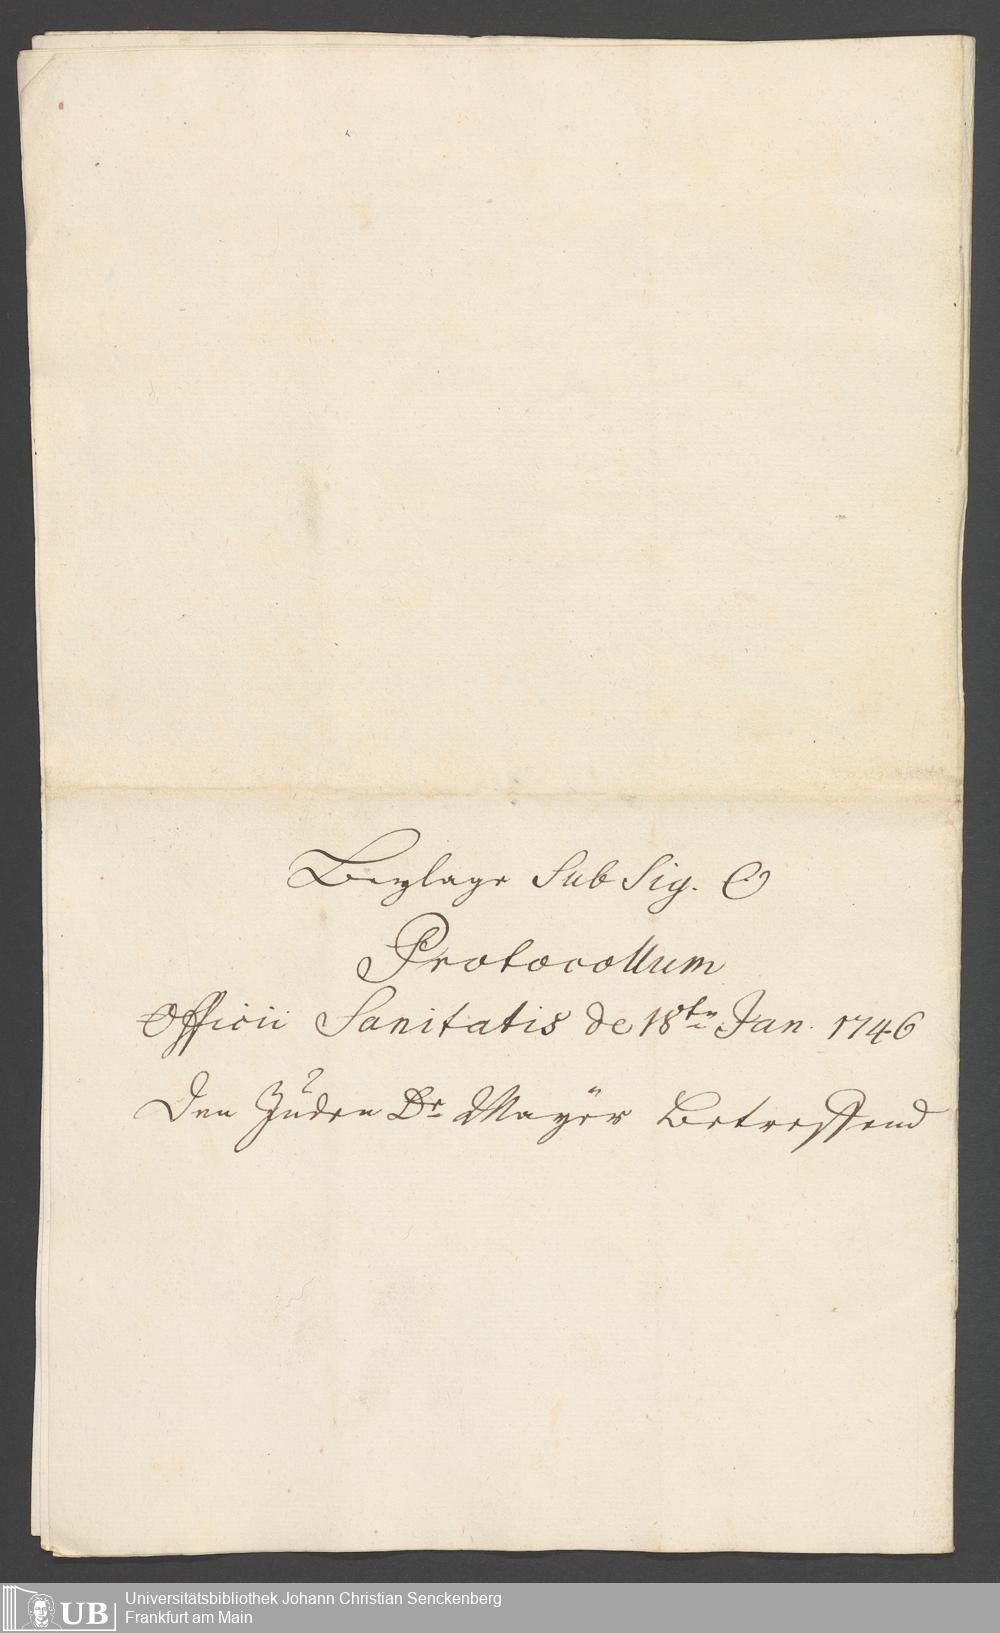 Beylage Sub Sig. ☉
Protocollum
Officii Sanitatis de 18ten Jan. 1746
Den Juden Dr Mayer Betreffend
UB Universitätsbibliothek Johann Christian Senckenberg
Frankfurt am Main